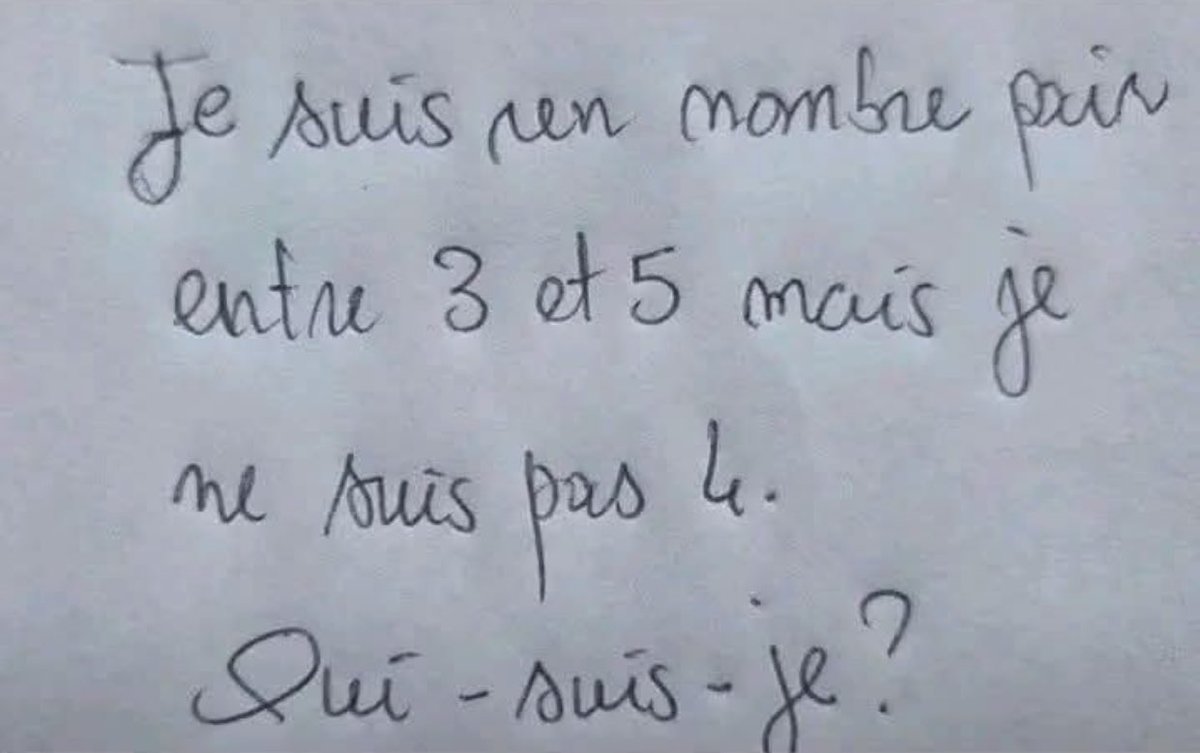 Je suis un nombre pair
entre 3 et 5 mais je
ne suis pas 4.
Qui - suis - je ?